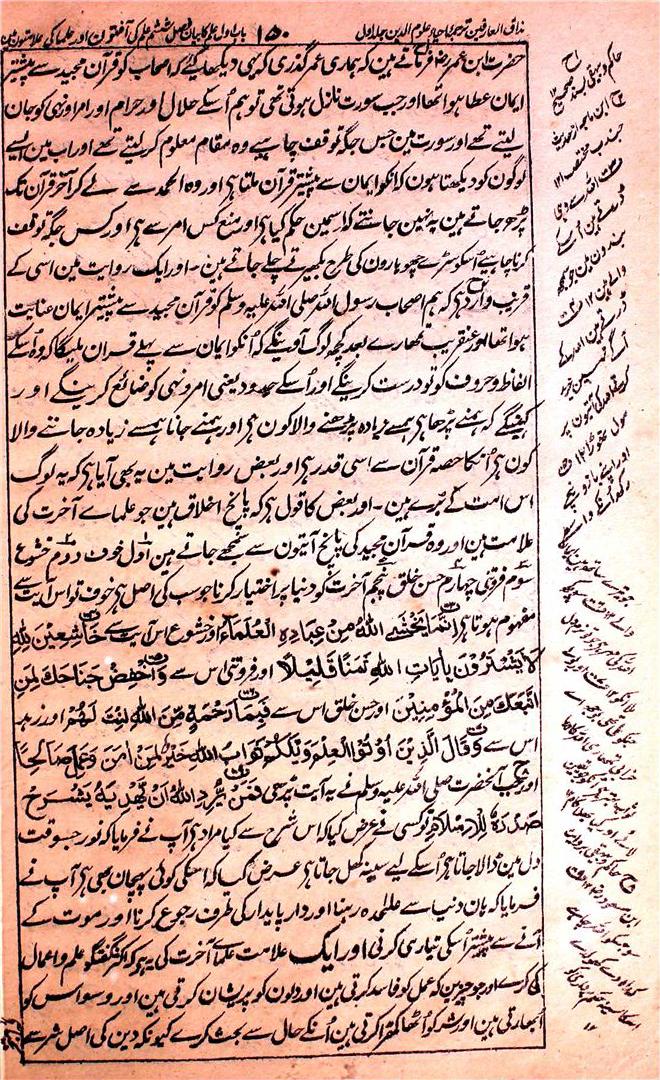 مذاق العارفین ترجمہ احیاء علوم الدین جلد اول ۱۵۰ باب اول علم کا بیان فصل ششم علم کی آفتون اور علما کی علامتون مین
حضرت ابن عمر رضہ فرماتے ہین کہ ہماری عمر گذری کہ یہی دیکھا کیے کہ اصحاب کو قرآن مجید سے پیشتر
ایمان عطا ہوا تھا اور جب سورت نازل ہوتی تھی تو ہم اُسکے حلال اور حرام اور امر و نہی کو جان
لیتے تھے اور سورت مین جس جگہ توقف چاہیے وہ مقام معلوم کر لیتے تھے اور اب مین ایسے
لوگون کو دیکھتا ہون کہ انکو ایمان سے پیشتر قرآن ملتا ہی اور وہ الحمد سے لے کر آخر قرآن تک
پڑھ جاتے ہین یہ نہین جانتے کہ اسمین حکم کیا ہی اور منع کس امر سے ہی اور کس جگہ توقف
کرنا چاہیے اُسکو سڑے چھوہارون کی طرح بکھیرتے چلے جاتے ہین ۔ اور ایک روایت مین اسی کے
قریب وارد ہی کہ ہم اصحاب رسول اللہ صلی اللہ علیہ وسلم کو قرآن مجید سے پیشتر ایمان عنایت
ہوا تھا اور عنقریب تمھارے بعد کچھ لوگ آوینگے کہ اُنکو ایمان سے پہلے قرآن ملیگا کہ وہ اُسکے
الفاظ و حروف کو تو درست کرینگے اور اُسکے حدود یعنی امر و نہی کو ضائع کرینگے اور
کہینگے کہ ہمنے پڑھا ہی ہمسے زیادہ پڑھنے والا کون ہی اور ہمنے جانا ہمسے زیادہ جاننے والا
کون ہی اُنکا حصہ قرآن سے اسی قدر ہی اور بعض روایت مین یہ بھی آیا ہی کہ یہ لوگ
اس امت کے بُرے ہین ۔ اور بعض کا قول ہی کہ پانچ اخلاق ہین جو علماے آخرت کی
علامت ہین اور وہ قرآن مجید کی پانچ آیتون سے سمجھے جاتے ہین اول خوف دوم خشوع
سوم فروتنی چہارم حسن خلق پنجم آخرت کو دنیا پر اختیار کرنا جو سب کی اصل ہی خوف تو اس آیت سے
مفہوم ہوتا ہی إِنَّمَا يَخْشَى اللّٰهَ مِنْ عِبَادِهِ الْعُلَمَاءُ اور خشوع اس آیت سے خَاشِعِيْنَ لِلّٰهِ
لَا يَشْتَرُوْنَ بِاٰيَاتِ اللّٰهِ ثَمَنًا قَلِيْلًا اور فروتنی اس سے وَاخْفِضْ جَنَاحَكَ لِمَنِ
اتَّبَعَكَ مِنَ الْمُؤْمِنِيْنَ اور حسن خلق اس سے فَبِمَا رَحْمَةٍ مِّنَ اللّٰهِ لِنْتَ لَهُمْ اور زہد
اس سے وَقَالَ الَّذِيْنَ اُوْتُوا الْعِلْمَ وَيْلَكُمْ ثَوَابُ اللّٰهِ خَيْرٌ لِّمَنْ اٰمَنَ وَعَمِلَ صَالِحًا
اور جب آنحضرت صلی اللہ علیہ وسلم نے یہ آیت پڑھی فَمَنْ يُّرِدِ اللّٰهُ اَنْ يَّهْدِيَهٗ يَشْرَحْ
صَدْرَهٗ لِلْاِسْلَامِ تو کسی نے عرض کیا کہ اس شرح سے کیا مراد ہی آپ نے فرمایا کہ نور جسوقت
دل مین ڈالا جاتا ہی اُسکے لیے سینہ کھل جاتا ہی عرض کیا کہ اسکی کوئی پہچان بھی ہی آپ نے
فرمایا کہ ہان دنیا سے علٰحدہ رہنا اور دار پایدار کی طرف رجوع کرنا اور موت کے
آنے سے پیشتر اُسکی تیاری کرنی اور ایک علامت علماے آخرت کی یہ ہی کہ اکثر گفتگو علم و اعمال
کی کرے اور جو چیزین کہ عمل کو فاسد کرتی ہین اور دلون کو پریشان کرتی ہین اور وسواس کو
اُبھارتی ہین اور شر کو اُٹھا کھڑا کرتی ہین اُنکے حال سے بحث کرے کیونکہ دین کی اصل شر سے
حاکم و بیہقی بسند صحیح ۱۲
ابن ماجہ از حدیث
جندب
اللہ سے وہی
ڈرتے ہین اُسکے
بندون مین جو سمجھ
والے ہین ۱۲
ڈرتے ہین اللہ کے
آگے نہین خرید
کرتے اللہ کی آیتون پر
مول تھوڑا ۱۲
اور اپنے بازو نیچے
رکھ اُنکے واسطے